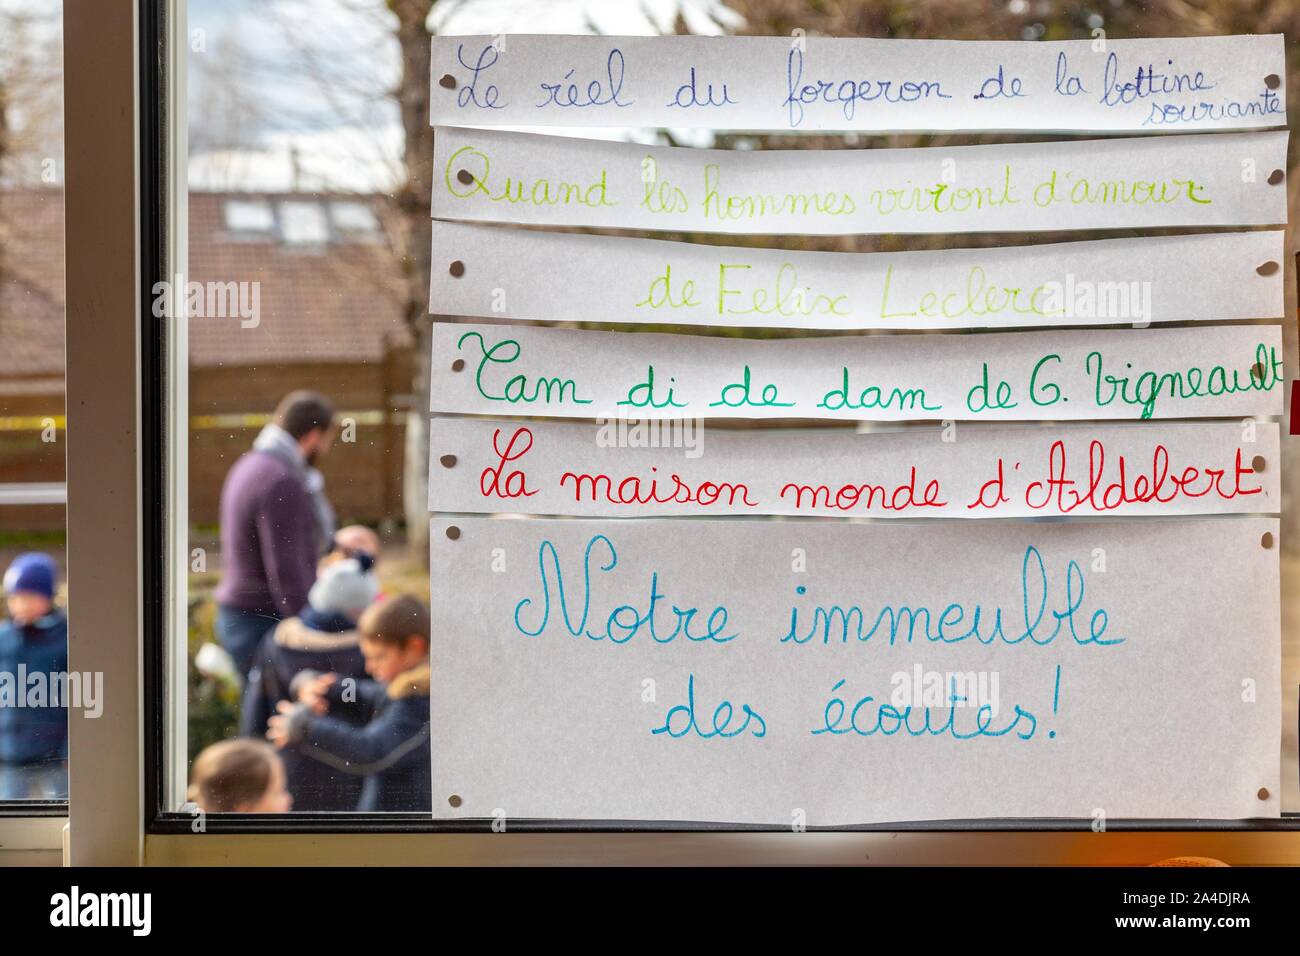 Le réel du forgeron de la bottine
souriante
Quand les hommes vivront d'amour
de Felix Leclerc
Tam di de dam de G. Vigneault
La maison monde d'Aldebert
Notre immeuble
des écoutes!
alamy
Image ID: 2A4DJRA
www.alamy.com